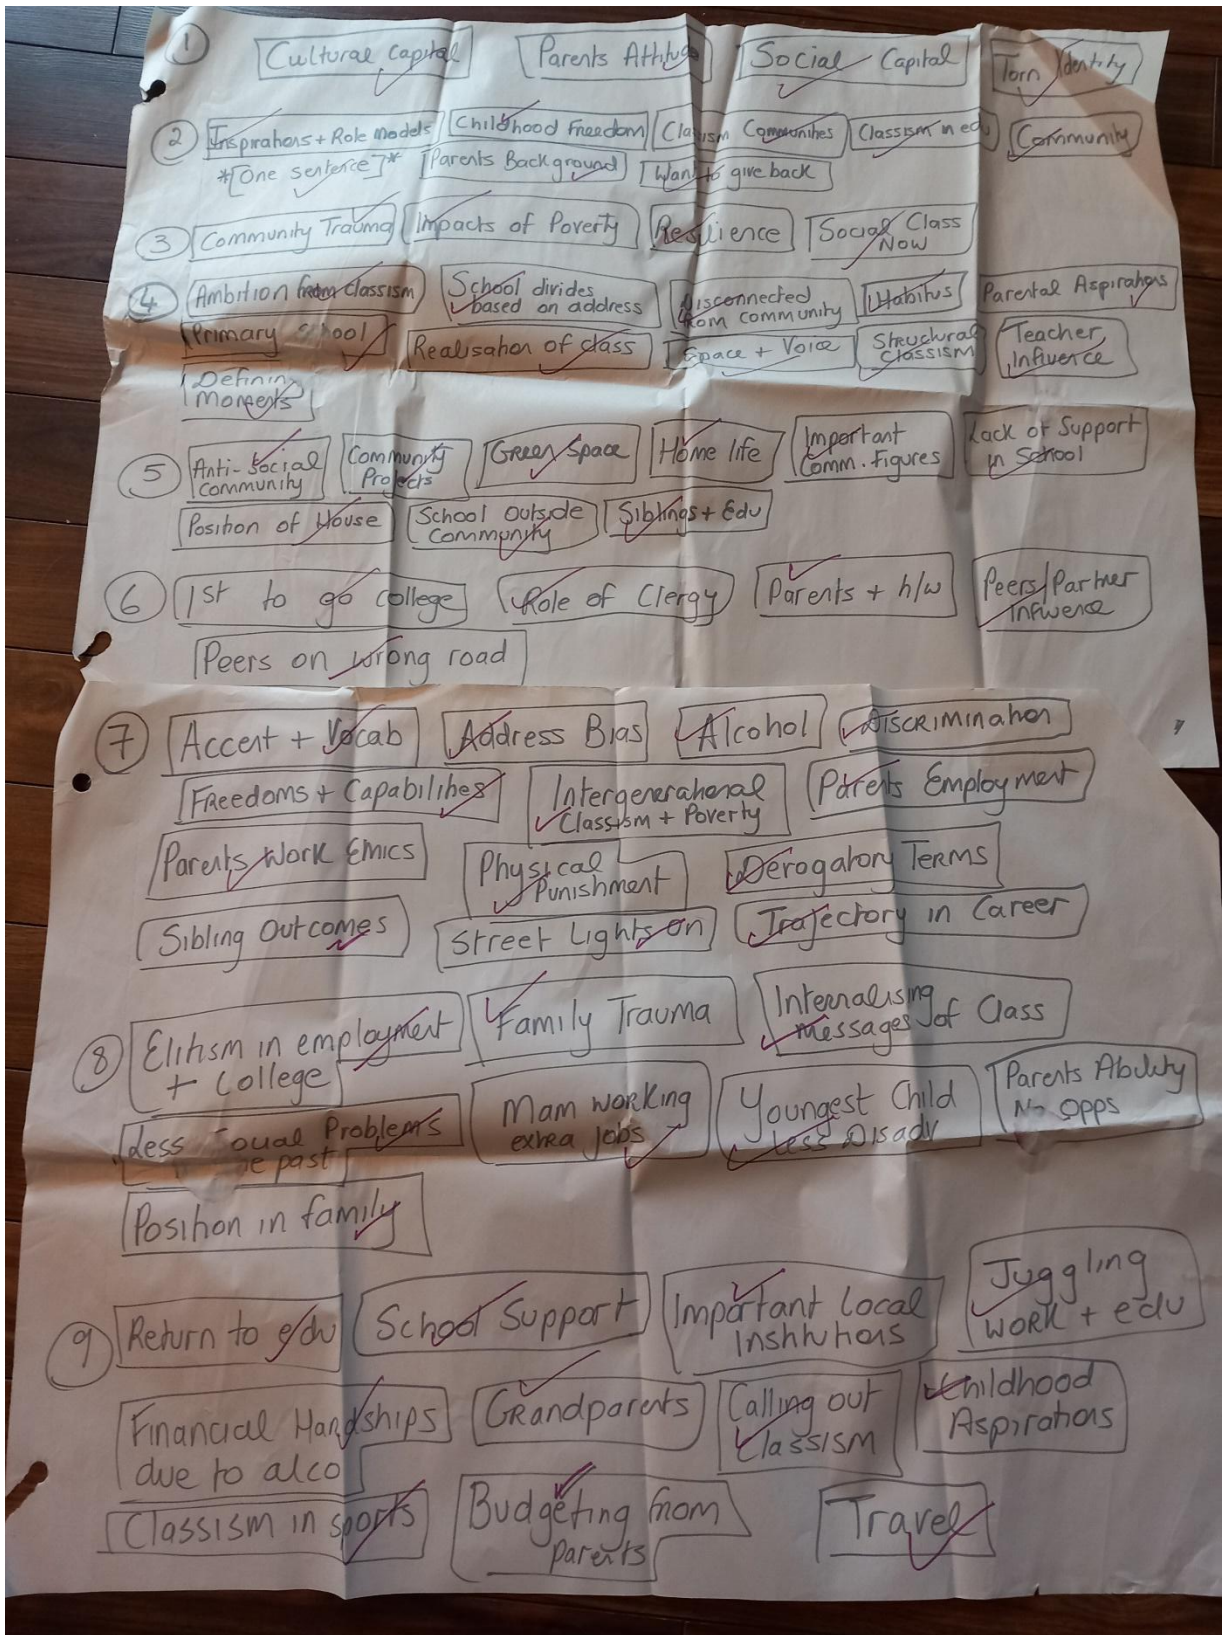 1 Cultural Capital Parents Attitude Social Capital Torn Identity
2 Inspirations + Role Models Childhood Freedom Classism Communities Classism in edu Community
*[One sentence]* Parents Background Want to give back
3 Community Trauma Impacts of Poverty Resilience Social Class
Now
4 Ambition from Classism School divides
based on address Disconnected
from community Habitus Parental Aspirations
Primary School Realisation of class Space + Voice Structural
Classism Teacher
Influence
Defining
Moments
5 Anti-Social
Community Community
Projects Green Space Home life Important
Comm. Figures Lack of Support
in School
Position of House School Outside
Community Siblings + Edu
6 1st to go college Role of Clergy Parents + h/w Peers/Partner
Influence
Peers on wrong road
7 Accent + Vocab Address Bias Alcohol Discrimination
Freedoms + Capabilities Intergenerational
Classism + Poverty Parents Employment
Parents Work Ethics Physical
Punishment Derogatory Terms
Sibling Outcomes Street Lights on Trajectory in Career
8 Elitism in employment
+ College Family Trauma Internalising
messages of Class
Less Social Problems
past Mam working
extra jobs Youngest Child
Less Disadv Parents Ability
No opps
Position in family
9 Return to edu School Support Important Local
Institutions Juggling
work + edu
Financial Hardships
due to alco Grandparents Calling out
Classism Childhood
Aspirations
Classism in sports Budgeting from
parents Travel